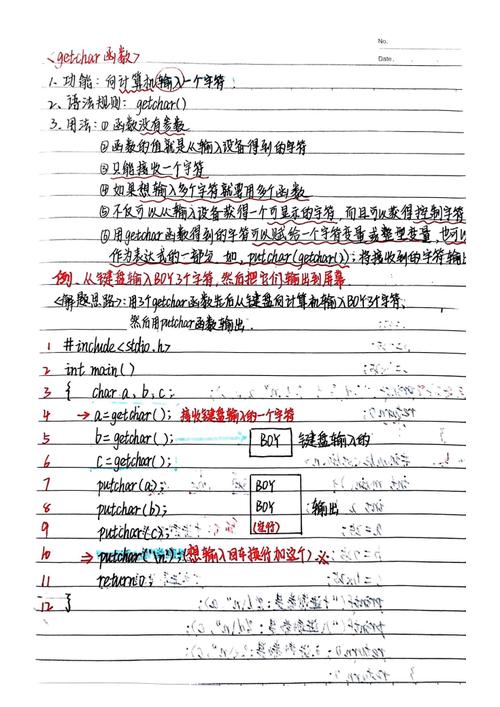 No.
Date.
<getchar函数>
1. 功能: 向计算机输入一个字符.
2. 语法规则: getchar()
3. 用法: ① 函数没有参数
② 函数的值就是从输入设备得到的字符
③ 只能接收一个字符
④ 如果想输入多个字符就要用多个函数
⑤ 不仅可以从输入设备获得一个可显示的字符, 而且可以获得控制字符
⑥ 用getchar函数得到的字符可以赋给一个字符变量或整型变量, 也可以
作为表达式的一部分. 如, putchar(getchar()); 将接收到的字符输出
例. 从键盘输入BOY3个字符, 然后把它们输出到屏幕.
<解题思路>: 用3个getchar函数先后从键盘向计算机输入BOY3个字符,
然后用putchar函数输出.
1 #include<stdio.h>
2 int main()
3 { char a, b, c;
4 → a=getchar(); 接收键盘输入的一个字符
5 b=getchar(); BOY 键盘输入的
6 c=getchar();
7 putchar(a); BOY
8 putchar(b); BOY 输出
9 putchar(c); (空行)
10 → putchar('\n'); (想输入回车换行加这个) ※
11 return 0;
12 }